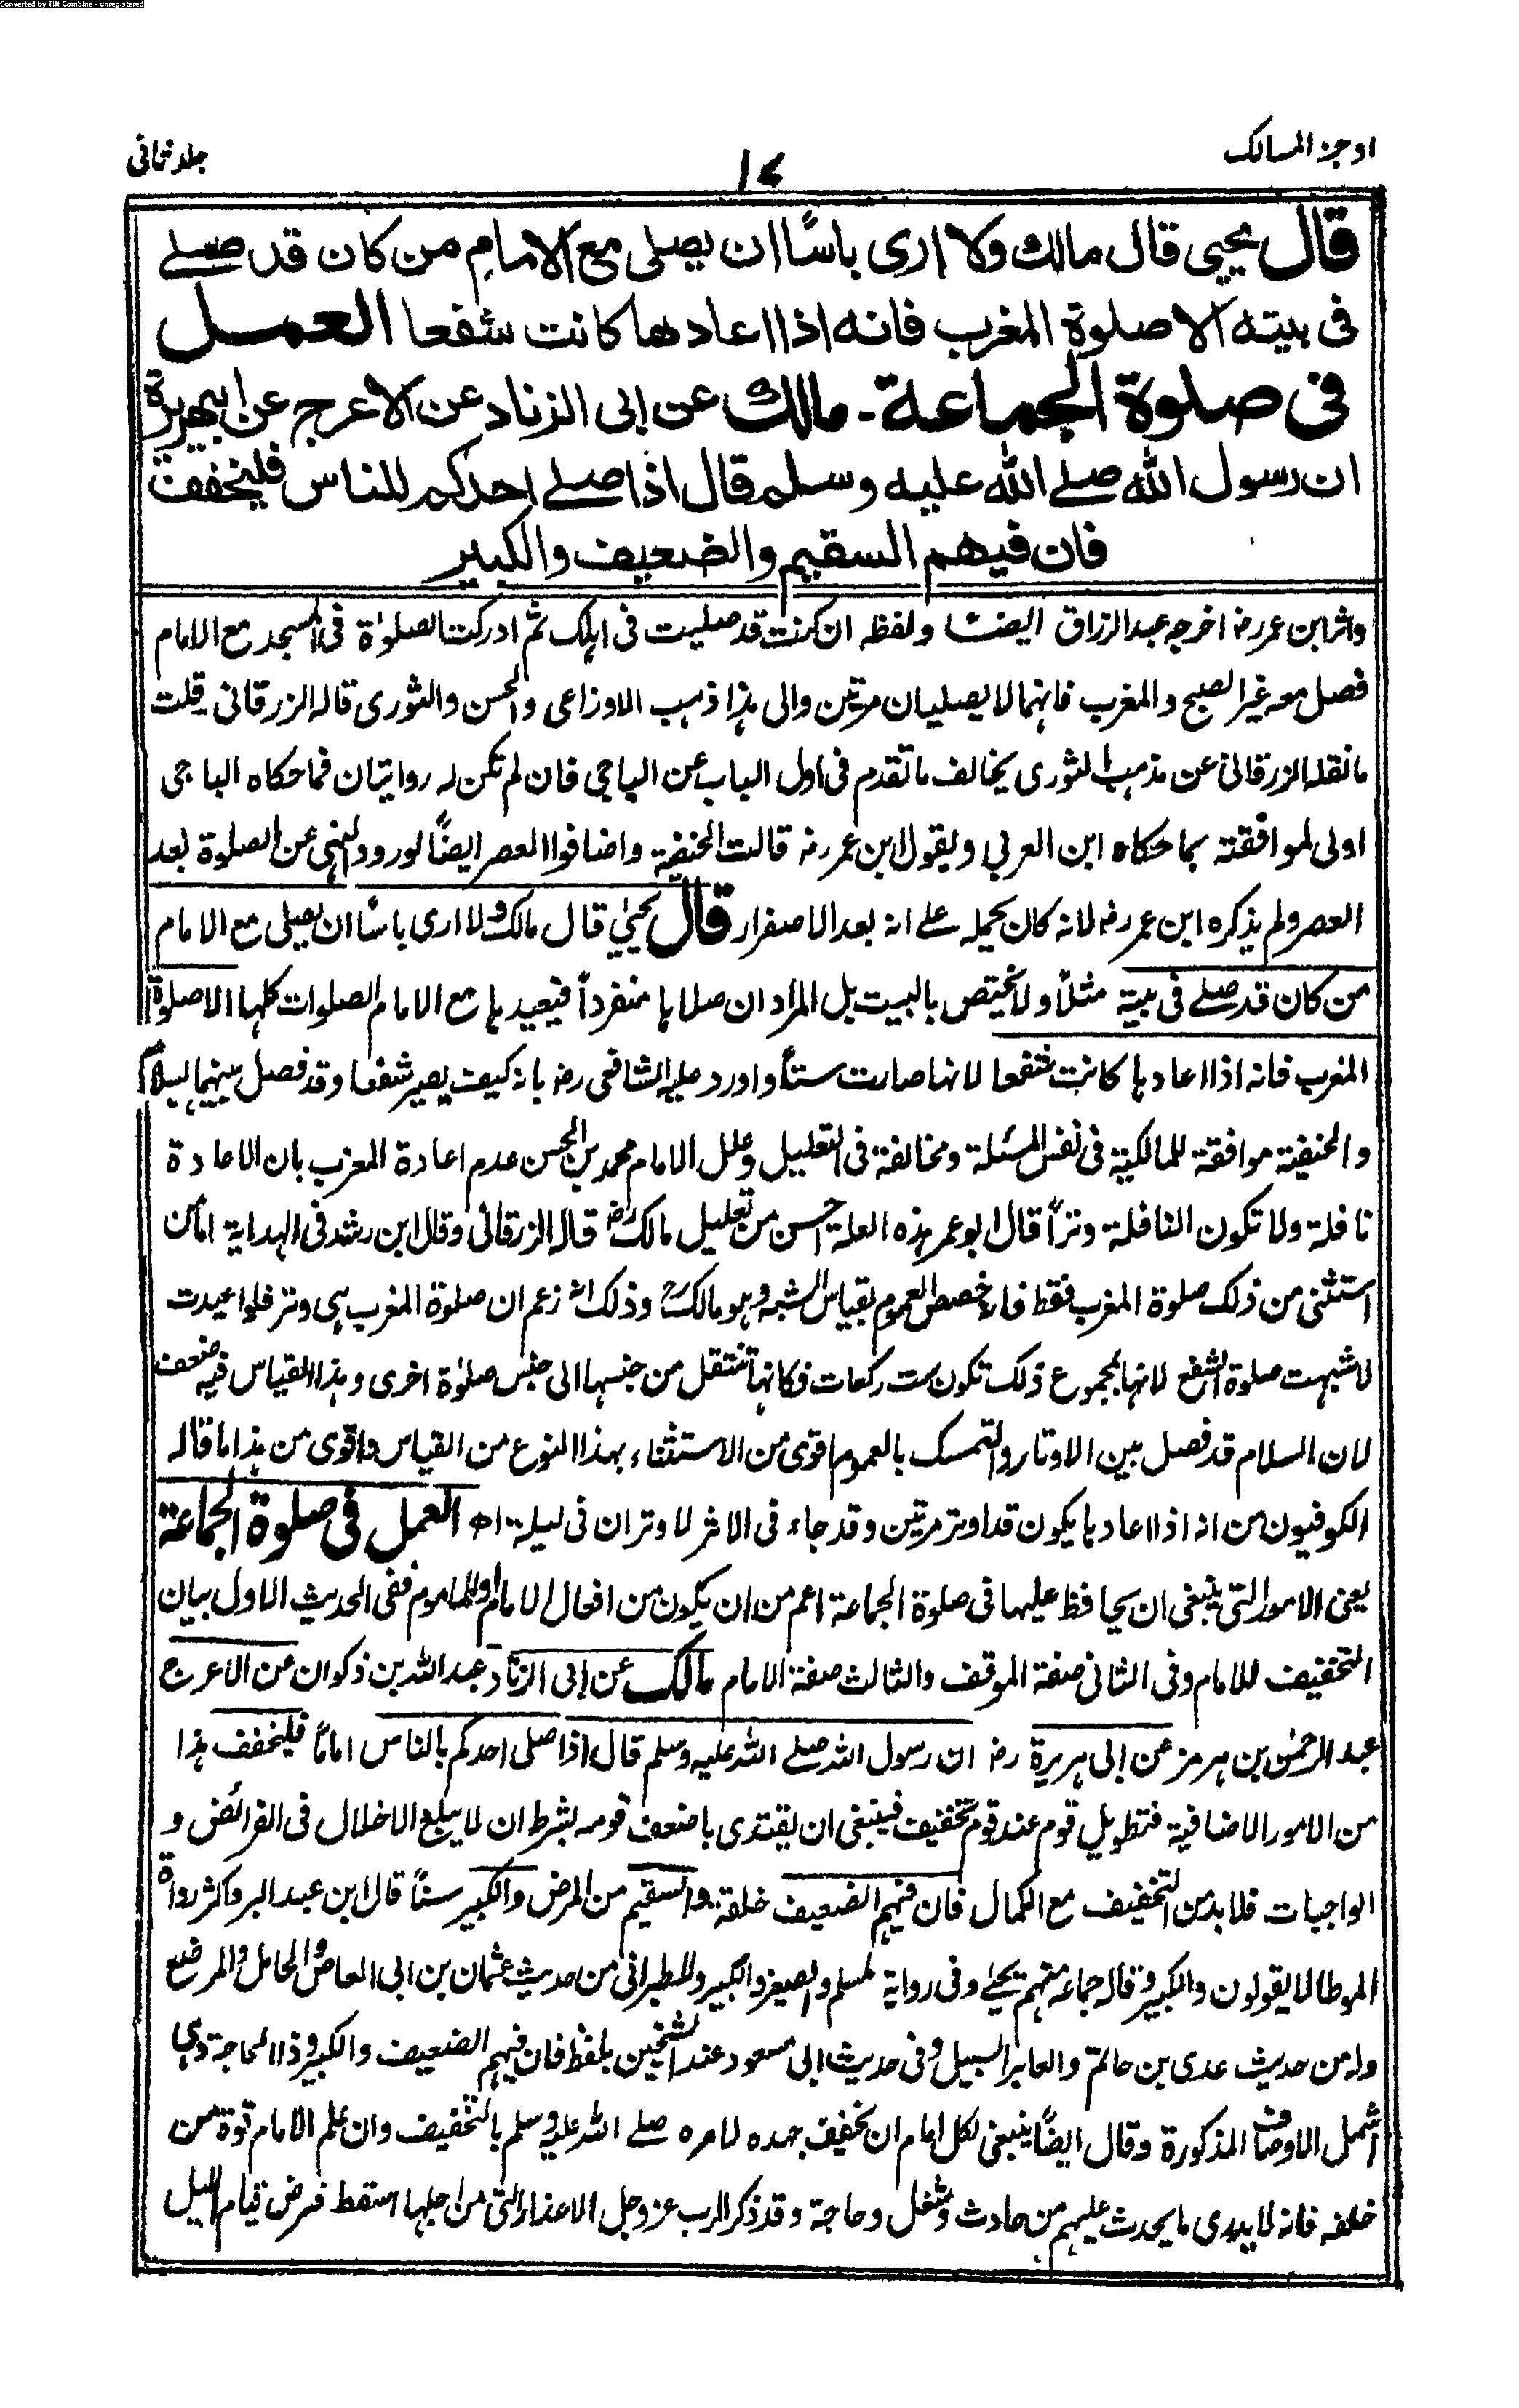 Converted by Tiff Combine - unregistered
اوجز المسالك
١٧
جلد ثانی
قال یحیی قال مالك ولا اری باسًا ان یصلی مع الامام من کان قد صلے
فی بیته الا صلوة المغرب فانه اذا اعادها کانت شفعا العمل
فی صلوة الجماعة - مالك عن ابی الزناد عن الاعرج عن ابی هریرة
ان رسول الله صلے الله علیه وسلم قال اذا صلے احدکم للناس فلیخفف
فان فیهم السقیم والضعیف والکبیر
واثر ابن عمر رض اخرجه عبد الرزاق ایضا ولفظه ان کنت قد صلیت فی اهلک ثم ادرکت الصلوٰة فی المسجد مع الامام
فصل معه غیر الصبح والمغرب فانهما لا یصلیان مرتین والی هذا ذهب الاوزاعی والحسن والثوری قاله الزرقانی قلت
ما نقله الزرقانی عن مذهب الثوری یخالف ما تقدم فی اول الباب عن الباجی فان لم تکن له روایتان فما حکاه الباجی
اولی لموافقته بما حکاه ابن العربی وبقول ابن عمر رض قالت الحنفیة واضافوا العصر ایضًا لورود النهی عن الصلوة بعد
العصر ولم یذکره ابن عمر رض لانه کان یحمله علے انه بعد الاصفرار قال یحییٰ قال مالک ولا اری باسًا ان یصلی مع الامام
من کان قد صلے فی بیته مثلاً ولا یختص بالبیت بل المراد ان صلاها منفرداً فیعیدها مع الامام الصلوات کلها الا صلوة
المغرب فانه اذا اعادها کانت شفعا لانها صارت ستاً واورد علیه الشافعی رض بانه کیف یصیر شفعا وقد فصل بینهما بسلام
والحنفیة موافقة للمالکیة فی نفس المسئلة ومخالفة فی التعلیل وعلل الامام محمد بن الحسن عدم اعادة المغرب بان الاعادة
نافلة ولا تکون النافلة وتراً قال ابو عمر هذه العلة احسن من تعلیل مالک رض قاله الزرقانی وقال ابن رشد فی الهدایة اما من
استثنی من ذلک صلوة المغرب فقط فانه خصص العموم بقیاس الشبه وهو مالک رح وذلک انه زعم ان صلوة المغرب هی وتر فلو اعیدت
لاشبهت صلوة الشفع لانها بمجموع ذلک تکون ست رکعات فکانها تنتقل من جنسها الی جنس صلوٰة اخری وهذا القیاس فیه ضعف
لان السلام قد فصل بین الاوتار والتمسک بالعموم اقوی من الاستثناء بهذا النوع من القیاس واقوی من هذا ما قاله
الکوفیون من انه اذا اعادها یکون قد اوتر مرتین وقد جاء فی الاثر لا وتران فی لیلة اه العمل فی صلوة الجماعة
یعنی الامور التی ینبغی ان یحافظ علیها فی صلوة الجماعة اعم من ان یکون من افعال الامام او الماموم ففی الحدیث الاول بیان
التخفیف للامام وفی الثانی صفة الموقف والثالث صفة الامام مالک عن ابی الزناد عبد الله بن ذکوان عن الاعرج
عبد الرحمٰن بن هرمز عن ابی هریرة رض ان رسول الله صلے الله علیه وسلم قال اذا صلی احدکم بالناس اماماً فلیخفف هذا
من الامور الاضافیة فتطویل قوم عند قوم تخفیف فینبغی ان یقتدی باضعف قومه بشرط ان لا یبلغ الاخلال فی الفرائض و
الواجبات فلا بد من التخفیف مع الکمال فان فیهم الضعیف خلقة والسقیم من المرض والکبیر سناً قال ابن عبد البر واکثر رواة
الموطا لا یقولون والکبیر وقاله جماعة منهم یحیےٰ وفی روایة لمسلم والصغیر والکبیر وللطبرانی من حدیث عثمان بن ابی العاص والحامل والمرضع
وله من حدیث عدی بن حاتم والعابر السبیل وفی حدیث ابی مسعود عند الشیخین بلفظ فان فیهم الضعیف والکبیر وذا الحاجة وهی
اشمل الاوصاف المذکورة وقال ایضًا ینبغی لکل امام ان یخفف جهده لامره صلے الله علیه وسلم بالتخفیف وان علم الامام قوة من
خلفه فانه لا یدری ما یحدث علیهم من حادث وشغل وحاجة وقد ذکر الرب عز وجل الاعذار التی من اجلها اسقط فرض قیام اللیل